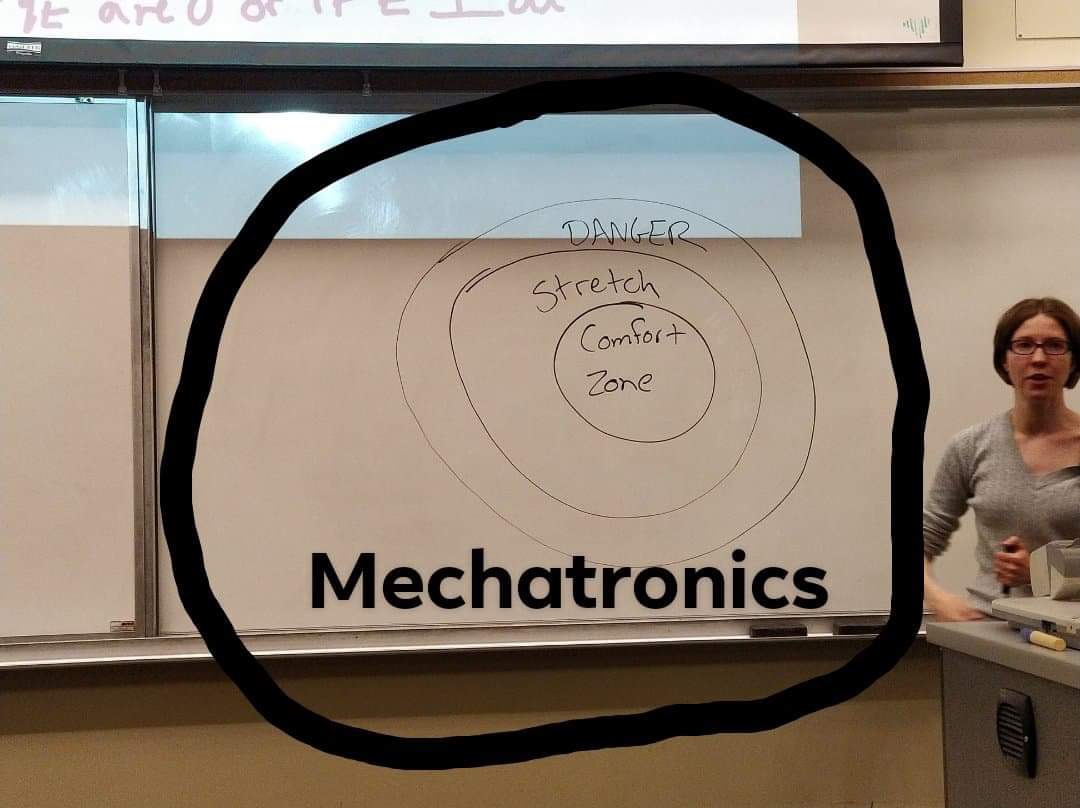 are 0 or if E
DANGER
Stretch
Comfort
Zone
Mechatronics